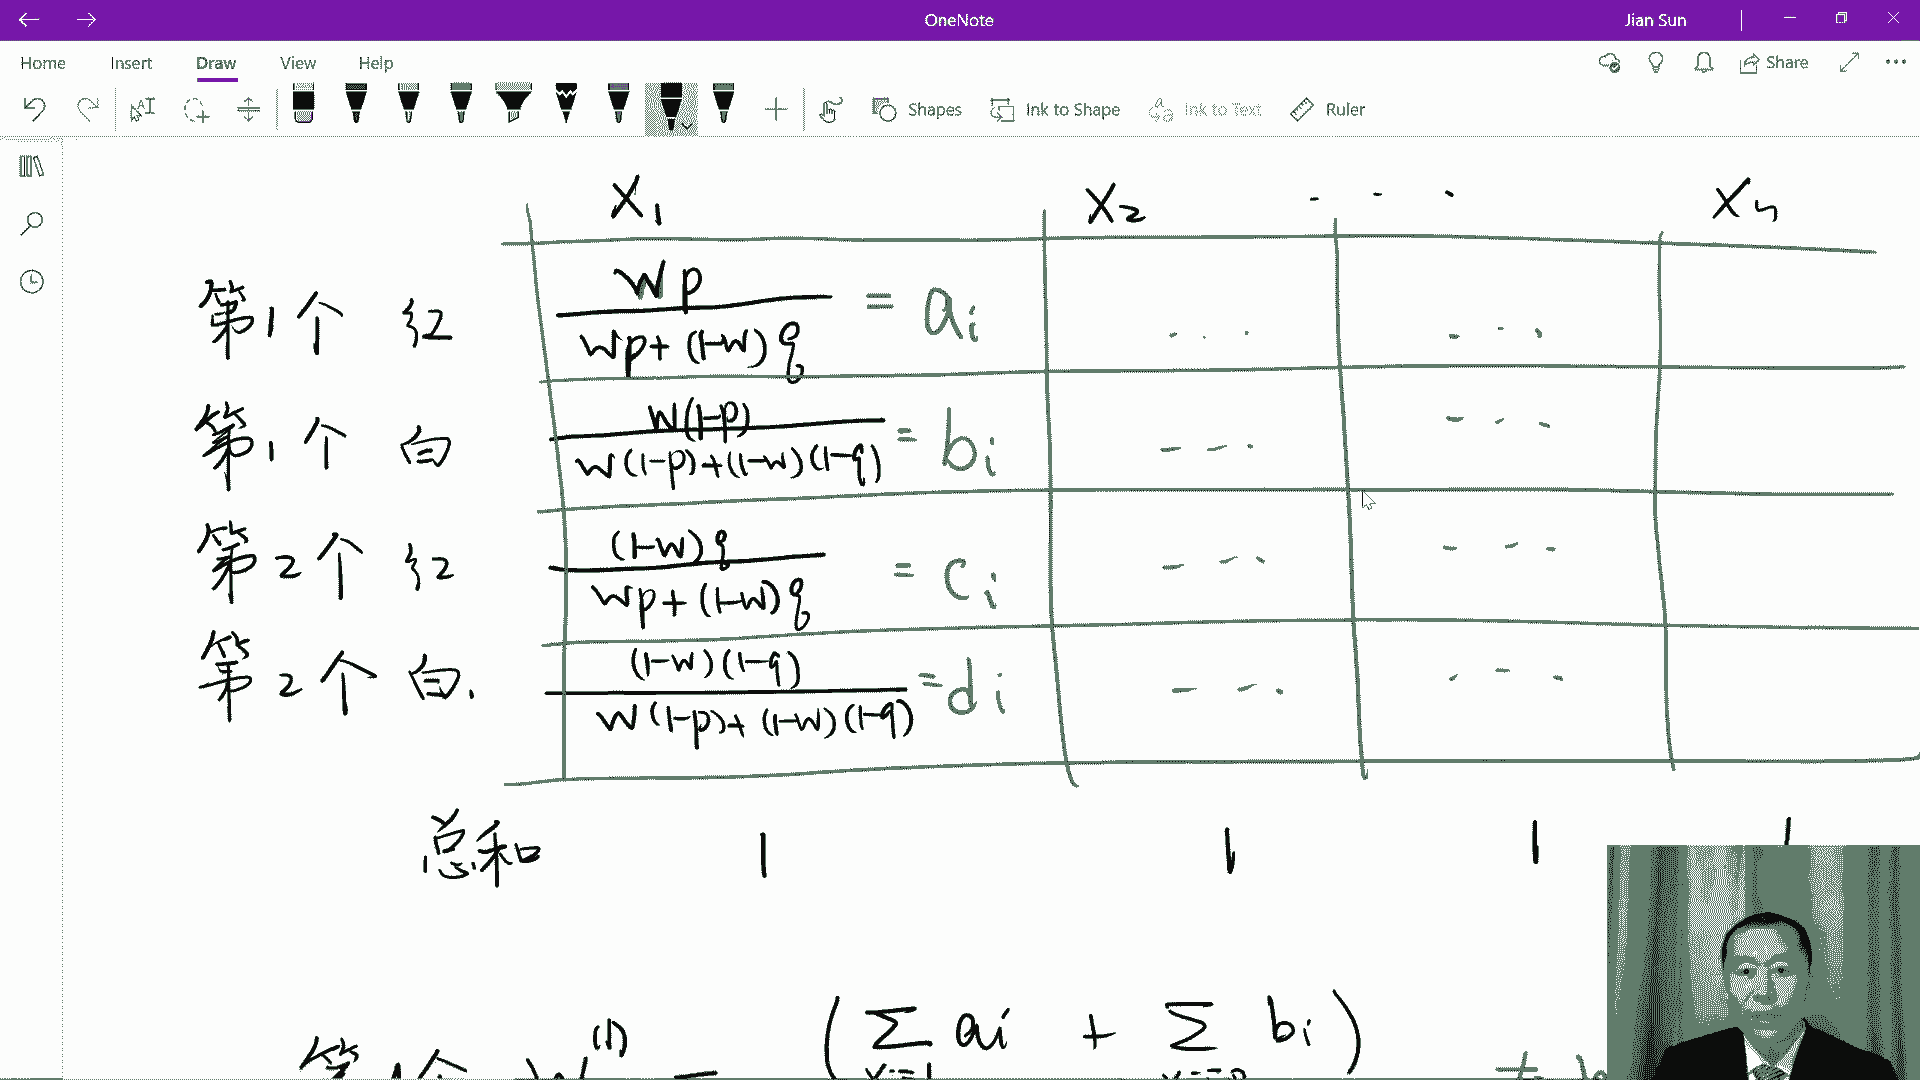 OneNote
Jian Sun
Home Insert Draw View Help
Share
Shapes Ink to Shape Ink to Text Ruler
X₁ X₂ · · · Xₙ
第1个 红 wp / (wp + (1-w)q) = aᵢ
第1个 白 w(1-p) / (w(1-p)+(1-w)(1-q)) = bᵢ
第2个 红 (1-w)q / (wp + (1-w)q) = cᵢ
第2个 白. (1-w)(1-q) / (w(1-p)+(1-w)(1-q)) = dᵢ
总和 1 1 1 1
(∑ aᵢ + ∑ bᵢ)
第1个 W⁽¹⁾ =